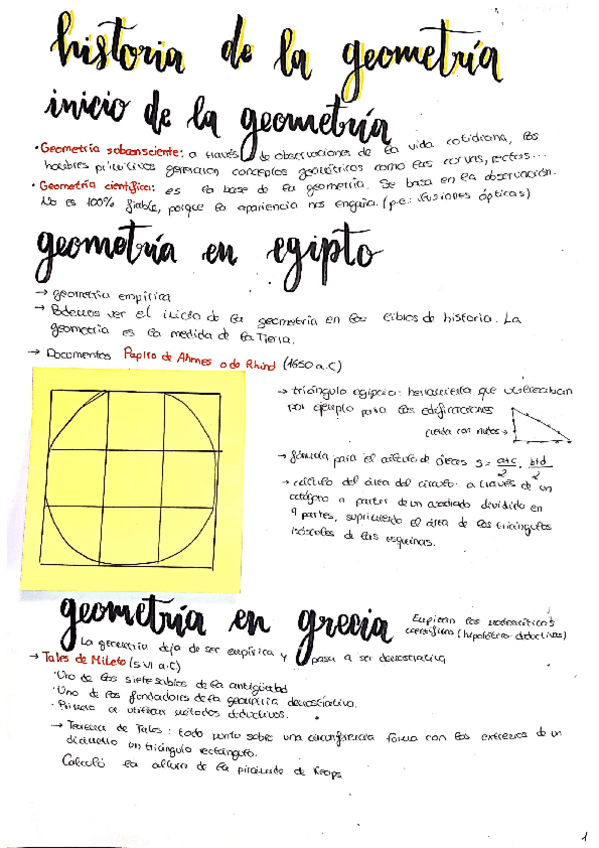 historia de la geometría
inicio de la geometría
· Geometría subconsciente: a través de observaciones de la vida cotidiana, los
hombres primitivos generaron conceptos geométricos como las curvas, rectas...
· Geometría científica: es la base de la geometría. Se basa en la observación.
No es 100% fiable, porque la apariencia nos engaña. (p.e.: ilusiones ópticas)
geometría en egipto
→ geometría empírica
→ Podemos ver el inicio de la geometría en los libros de historia. La
geometría es la medida de la Tierra.
→ Documentos Papiro de Ahmes o de Rhind (1650 a.C)
→ triángulo egipcio: herramienta que utilizaban
por ejemplo para las edificaciones
cuerda con nudos →
→ fórmula para el cálculo de áreas S = a+c/2 · b+d/2
→ cálculo del área del círculo: a través de un
octógono a partir de un cuadrado dividido en
9 partes, suprimiendo el área de los triángulos
isósceles de las esquinas.
geometría en grecia
Empiezan los matemáticos
científicos (hipotético-deductivas)
La geometría deja de ser empírica y pasa a ser demostrativa
→ Tales de Mileto (s VI a.C)
· Uno de los siete sabios de la antigüedad
· Uno de los fundadores de la geometría demostrativa.
· Primero en utilizar métodos deductivos.
→ Teorema de Tales: todo punto sobre una circunferencia forma con los extremos de un
diámetro un triángulo rectángulo.
Calculó la altura de la pirámide de Keops
1